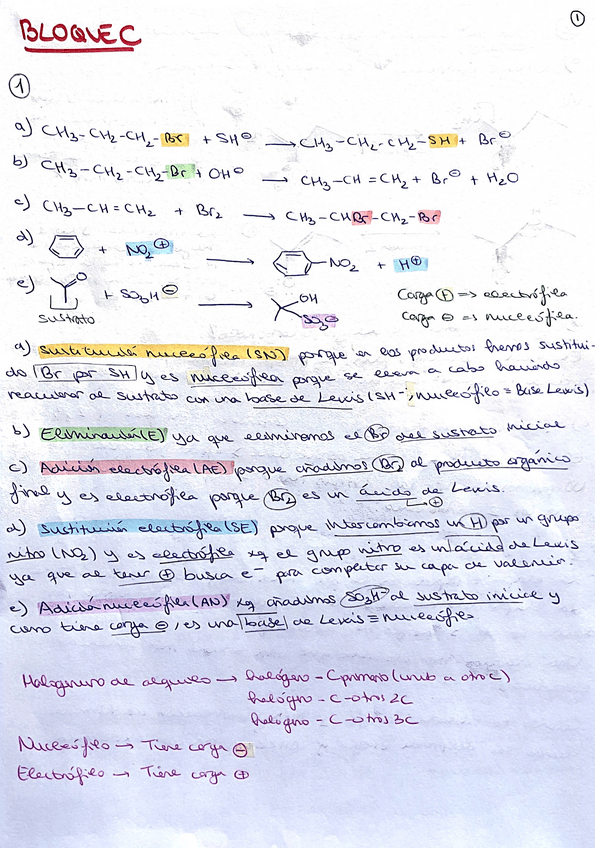 BLOQUE C
1
1
a) CH3-CH2-CH2-Br + SH⊖ → CH3-CH2-CH2-SH + Br⊖
b) CH3-CH2-CH2-Br + OH⊖ → CH3-CH=CH2 + Br⊖ + H2O
c) CH3-CH=CH2 + Br2 → CH3-CHBr-CH2-Br
d) + NO2⊕ → NO2 + H⊕
e) O + SO3H⊖ → OH
SO3⊖
Sustrato
Carga ⊕ => electrófila
Carga ⊖ => nucleófila.
a) Sustitución nucleófila (SN) porque en los productos hemos sustitui-
do Br por SH y es nucleófila porque se lleva a cabo haciendo
reaccionar al sustrato con una base de Lewis (SH-, nucleófilo = Base Lewis)
b) Eliminación (E) ya que eliminamos el Br del sustrato inicial
c) Adición electrófila (AE) porque añadimos Br2 al producto orgánico
final y es electrófila porque Br2 es un ácido de Lewis.
⊕
d) Sustitución electrófila (SE) porque intercambiamos un H por un grupo
nitro (NO2) y es electrófila xq el grupo nitro es un ácido de Lewis
ya que al tener ⊕ busca e- para completar su capa de valencia.
e) Adición nucleófila (AN) xq añadimos SO3H- al sustrato inicial y
como tiene carga ⊖, es una base de Lewis = nucleófilo
Halogenuro de alquilo → halógeno - C primario (unido a otro C)
halógeno - C - otros 2C
halógeno - C - otros 3C
Nucleófilo → Tiene carga ⊖
Electrófilo → Tiene carga ⊕